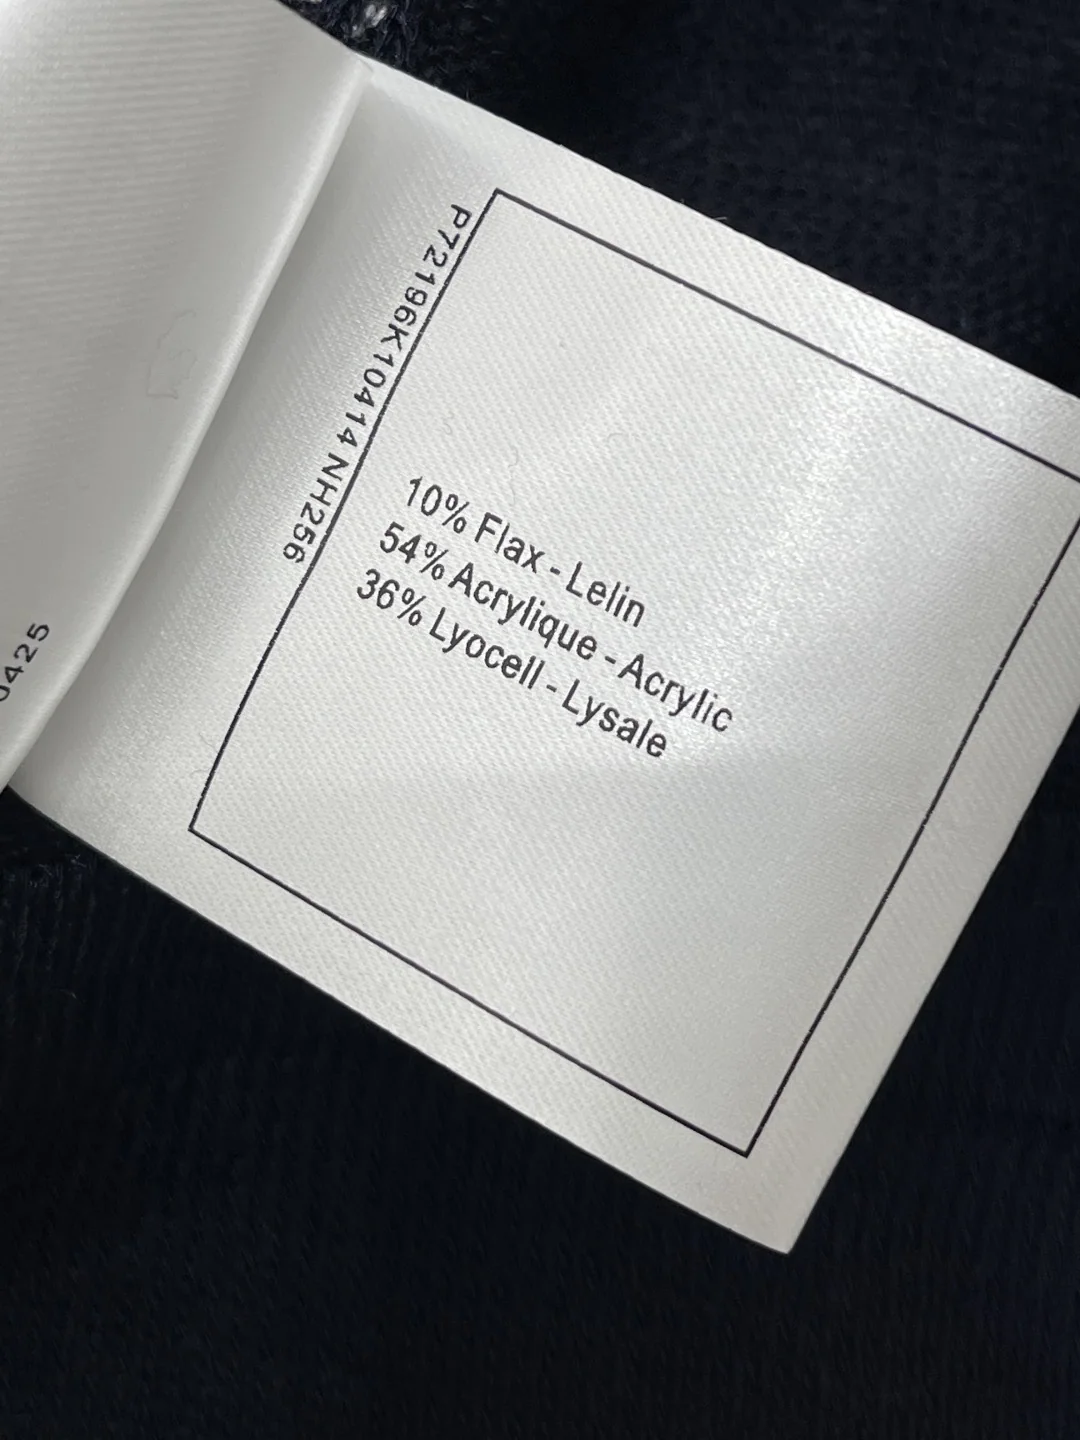 P72196K10414 NH256
10% Flax - Lelin
54% Acrylique - Acrylic
36% Lyocell - Lysale
0425